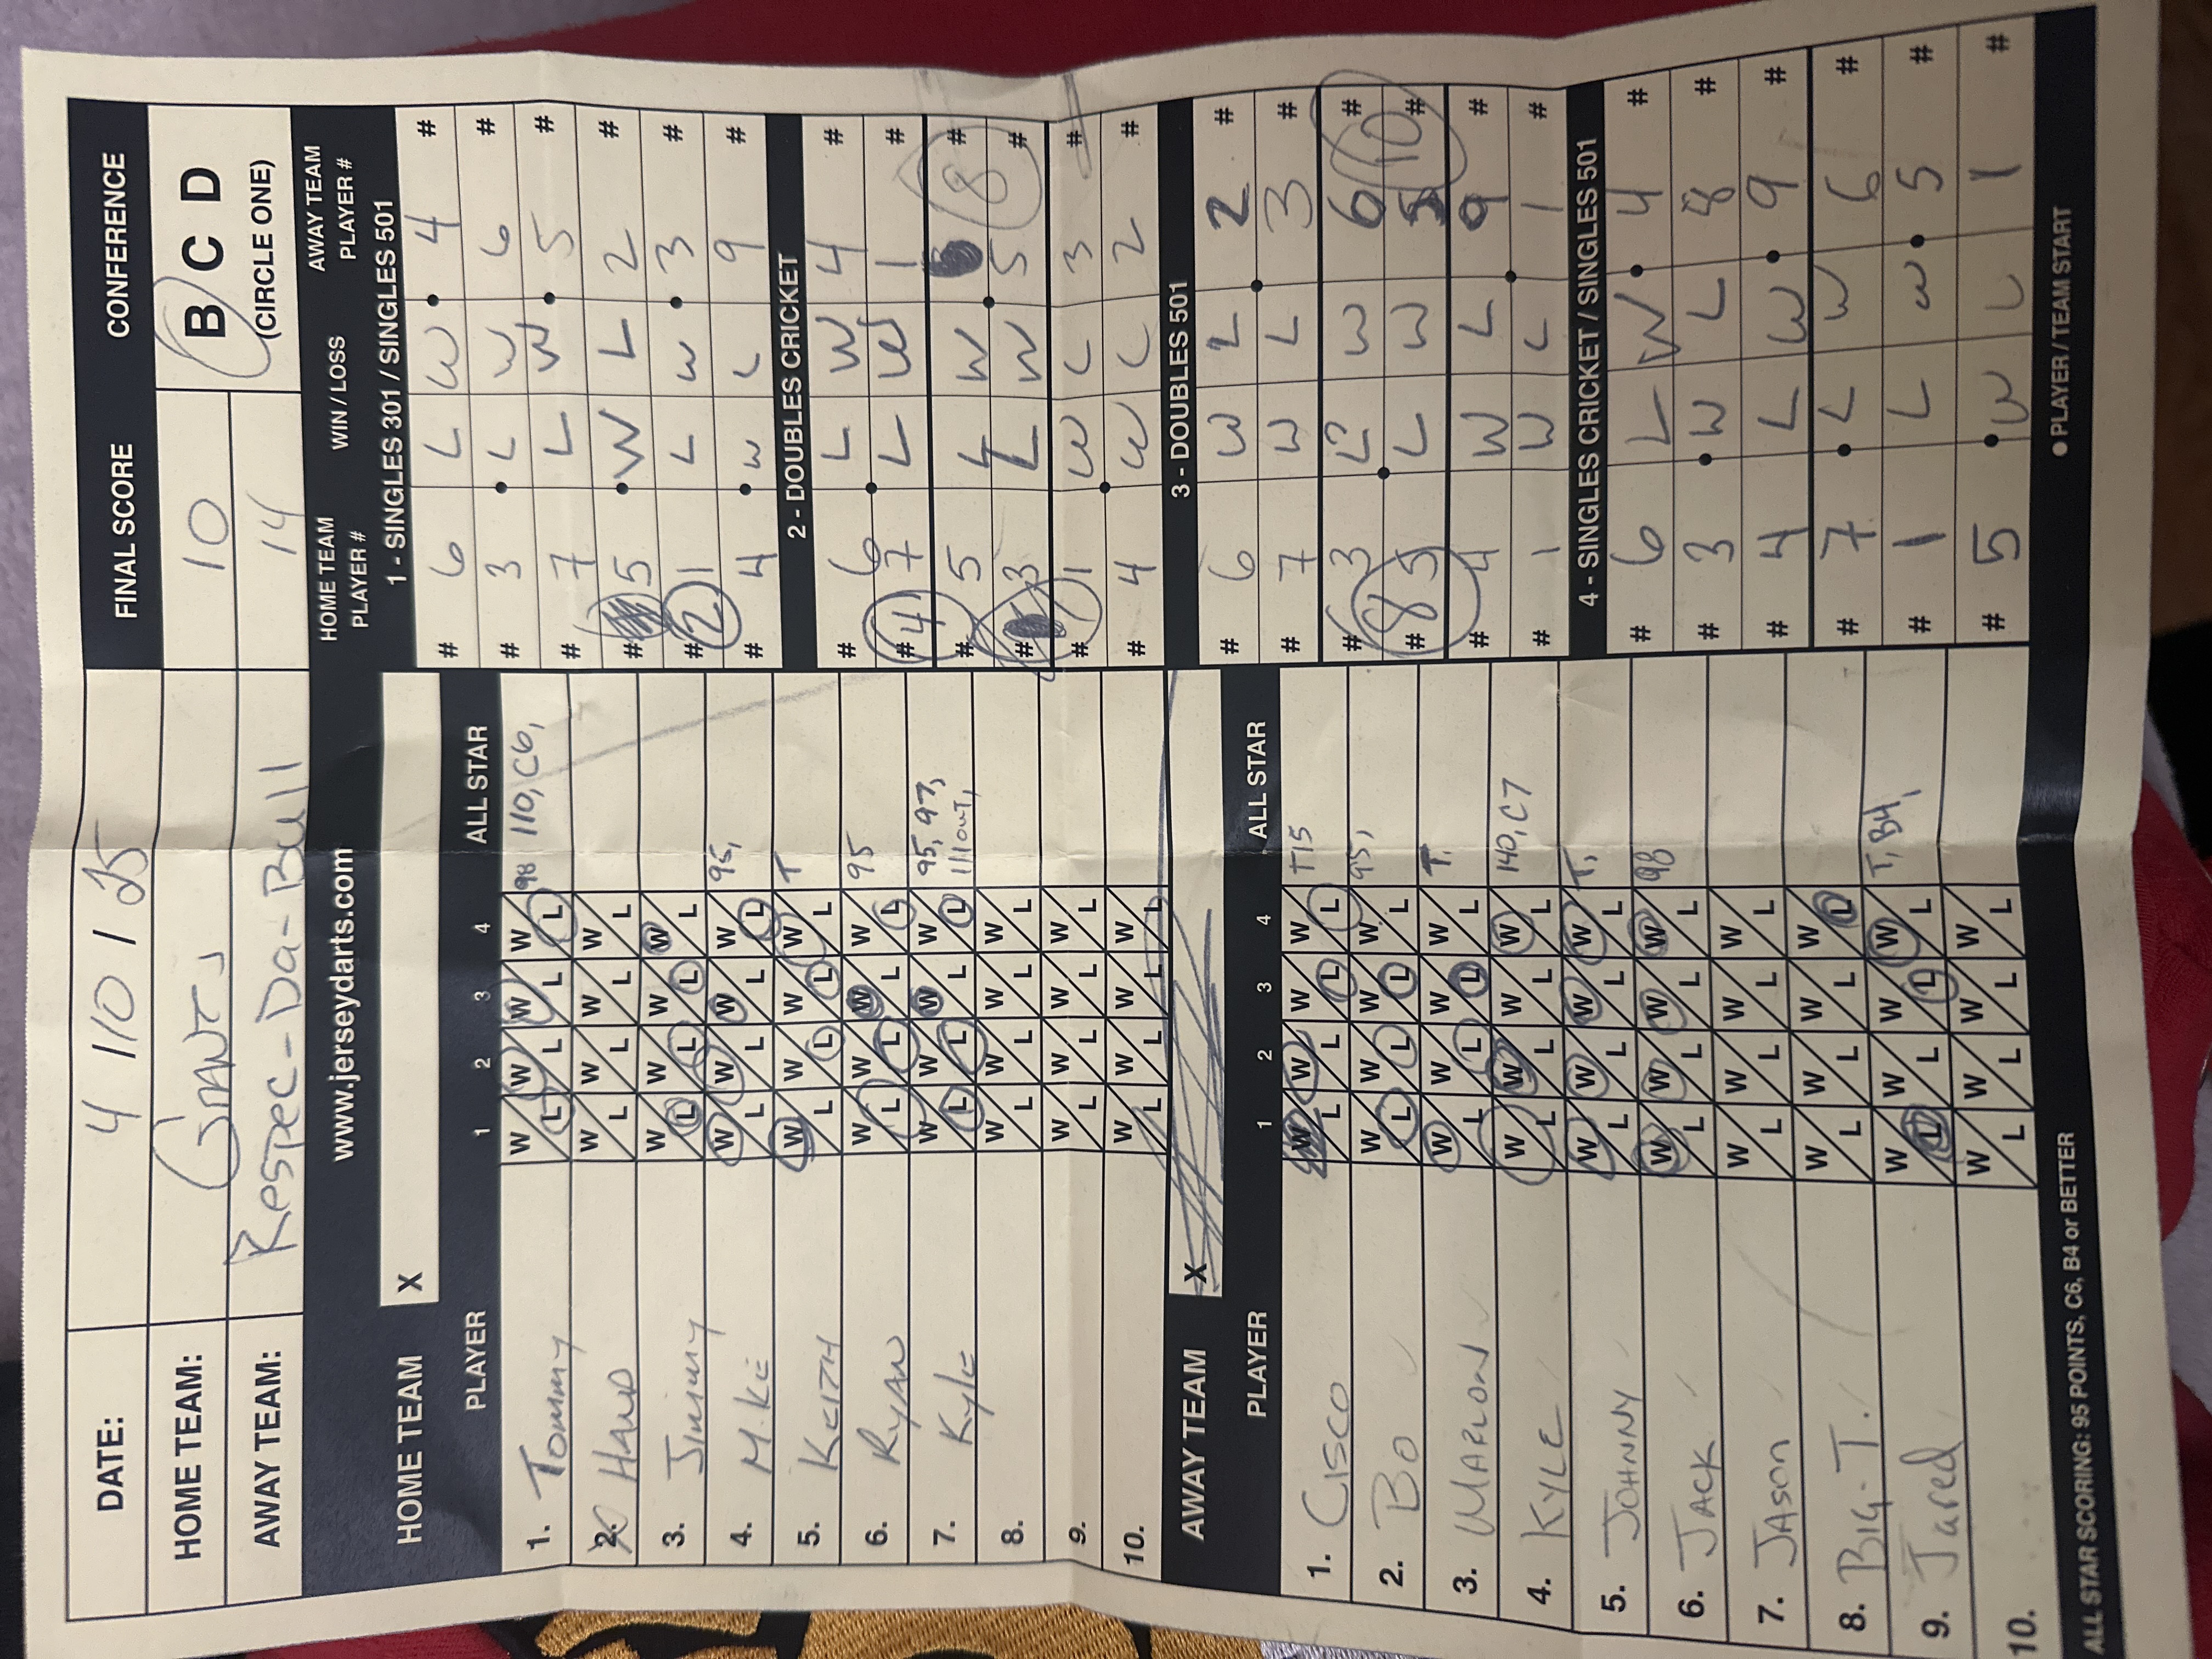 DATE: 4 / 10 / 25 FINAL SCORE CONFERENCE
HOME TEAM: GIANTS 10 B C D
AWAY TEAM: Respec-Da-Bull 14 (CIRCLE ONE)
www.jerseydarts.com
HOME TEAM X
PLAYER 1 2 3 4 ALL STAR
1. Tommy W L W L W L W L 98 110, C6,
2. HAND W L W L W L W L
3. Jimmy W L W L W L W L
4. MIKE W L W L W L W L 95,
5. KEITH W L W L W L W L T
6. RYAN W L W L W L W L 95
7. Kyle W L W L W L W L 95, 97, 111 OUT,
8. W L W L W L W L
9. W L W L W L W L
10. W L W L W L W L
AWAY TEAM X
PLAYER 1 2 3 4 ALL STAR
1. CISCO W L W L W L W L T15
2. BO W L W L W L W L 95,
3. MARLON W L W L W L W L T,
4. KYLE W L W L W L W L 140, C7
5. JOHNNY W L W L W L W L T,
6. JACK W L W L W L W L 98
7. JASON W L W L W L W L
8. BIG-T. W L W L W L W L
9. Jared W L W L W L W L T, B4,
10. W L W L W L W L
ALL STAR SCORING: 95 POINTS, C6, B4 or BETTER
HOME TEAM PLAYER # WIN / LOSS AWAY TEAM PLAYER #
1 - SINGLES 301 / SINGLES 501
# 6 L W 4 #
# 3 L W 6 #
# 7 L W 5 #
# 5 W L 2 #
# 2 1 L W 3 #
# 4 W L 9 #
2 - DOUBLES CRICKET
# 6 L W 4 #
# 4 7 L W 1 #
# 5 L W #
# 3 L W 5 8 #
# 1 W L 3 #
# 4 W L 2 #
3 - DOUBLES 501
# 6 W L 2 #
# 7 W L 3 #
# 3 L W 6 #
# 8 5 L W 5 10 #
# 4 W L 9 #
# 1 W L 1 #
4 - SINGLES CRICKET / SINGLES 501
# 6 L W 4 #
# 3 W L 8 #
# 4 L W 9 #
# 7 L W 6 #
# 1 L W 5 #
# 5 W L 1 #
PLAYER / TEAM START